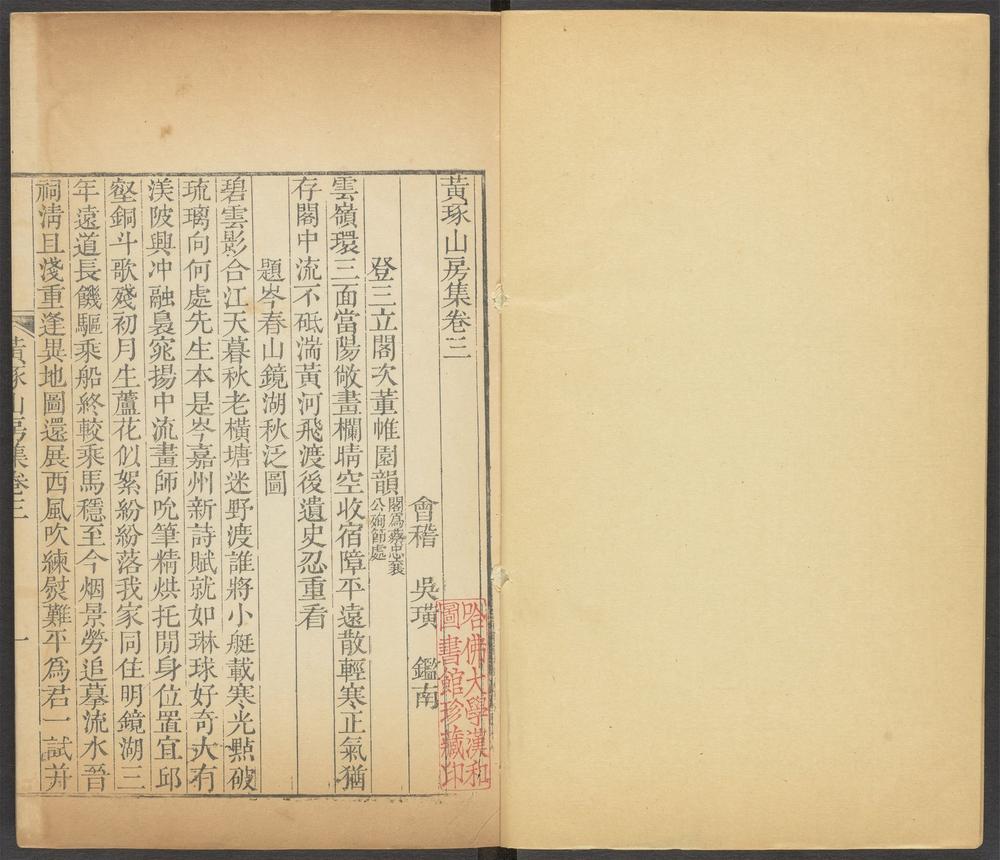 黃琢山房集卷三
會稽 吳璜 鑑南
登三立閣次董帷園韻閣爲蔡忠襄公殉節處
雲嶺環三面當陽敞畫欄晴空收宿障平遠散輕寒正氣猶
存閣中流不砥湍黃河飛渡後遺史忍重看
題岑春山鏡湖秋泛圖
碧雲影合江天暮秋老橫塘迷野渡誰將小艇載寒光點破
琉璃向何處先生本是岑嘉州新詩賦就如琳球好奇大有
渼陂興冲融裊窕揚中流畫師吮筆精烘托閒身位置宜邱
壑銅斗歌殘初月生蘆花似絮紛紛落我家同住明鏡湖三
年遠道長饑驅乘船終較乘馬穩至今烟景勞追摹流水晉
祠淸且淺重逢異地圖還展西風吹練熨難平爲君一試并
黃琢山房集卷三
一
哈佛大學漢和
圖書館珍藏印